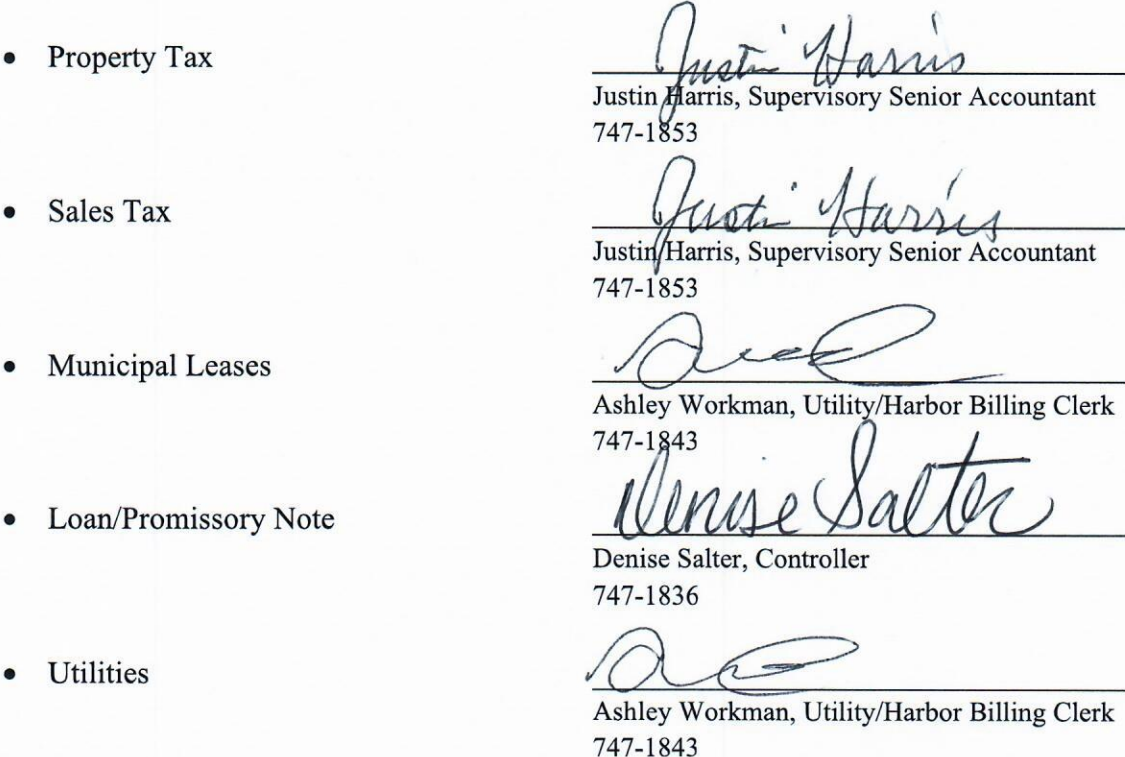 • Property Tax
Justin Harris
Justin Harris, Supervisory Senior Accountant
747-1853
• Sales Tax
Justin Harris
Justin Harris, Supervisory Senior Accountant
747-1853
• Municipal Leases
Ashley Workman, Utility/Harbor Billing Clerk
747-1843
• Loan/Promissory Note
Denise Salter
Denise Salter, Controller
747-1836
• Utilities
Ashley Workman, Utility/Harbor Billing Clerk
747-1843